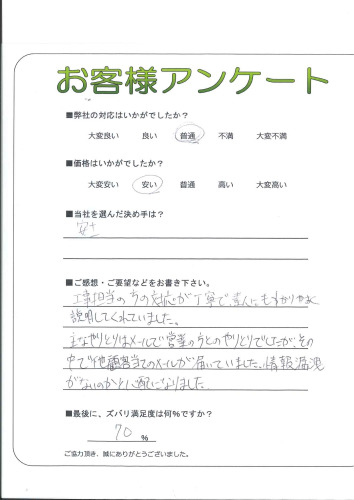 お客様アンケート
■弊社の対応はいかがでしたか？
大変良い 良い 普通 不満 大変不満
■価格はいかがでしたか？
大変安い 安い 普通 高い 大変高い
■当社を選んだ決め手は？
安さ
■ご感想・ご要望などをお書き下さい。
工事担当の方の対応が丁寧で、素人にも分かりやすく
説明してくれていました。
主なやりとりはメールで営業の方とのやりとりでしたが、その
中で他顧客当てのメールが届いていました。情報漏洩
がないのか心配になりました。
■最後に、ズバリ満足度は何%ですか？
70 %
ご協力頂き、誠にありがとうございました。